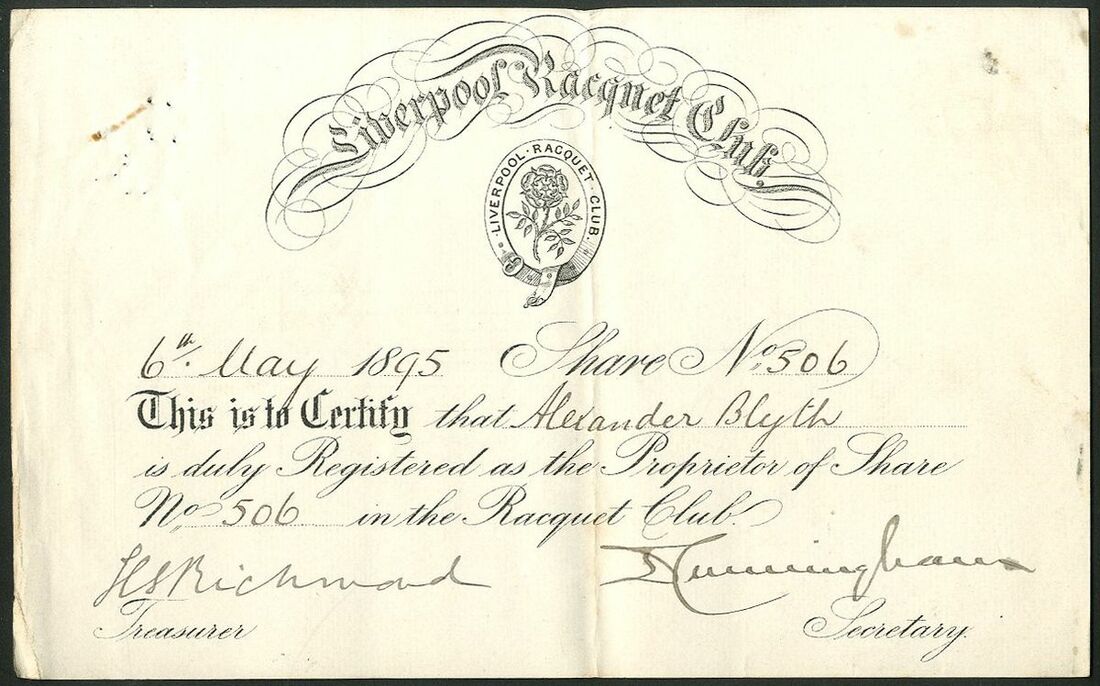 Liverpool Racquet Club.
LIVERPOOL · RACQUET · CLUB.
6th May 1895 Share No. 506
This is to Certify that Alexander Blyth
is duly Registered as the Proprietor of Share
No. 506 in the Racquet Club.
HS Richmond Cunningham
Treasurer Secretary.